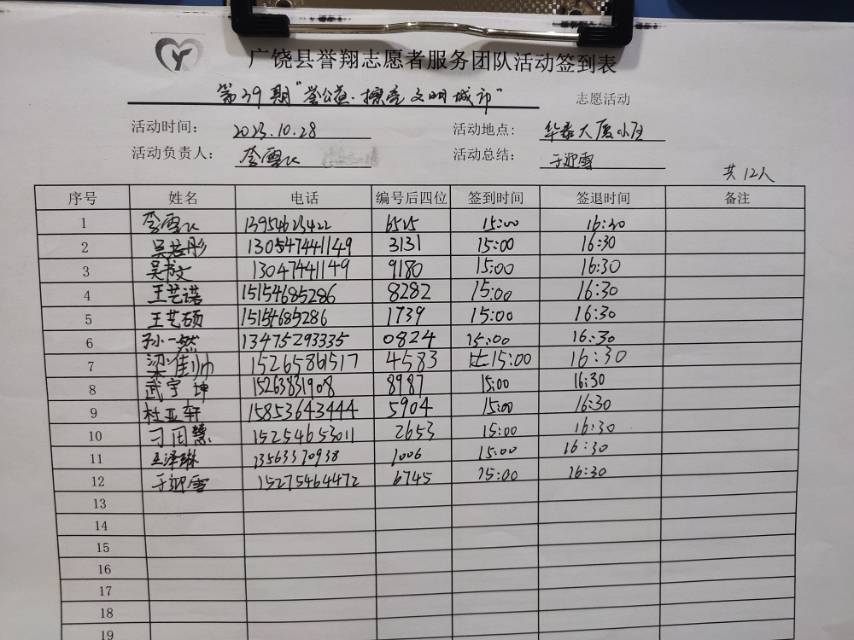 广饶县誉翔志愿者服务团队活动签到表
第39期"誉公益·擦亮文明城市" 志愿活动
活动时间: 2023.10.28 活动地点: 华泰大厦小区
活动负责人: 李雪 活动总结: 于迎雪
共12人
序号 姓名 电话 编号后四位 签到时间 签退时间 备注
1 李雪 13954623422 6525 15:00 16:30
2 吴若彤 130547441149 3131 15:00 16:30
3 吴文 13047441149 9180 15:00 16:30
4 王艺诺 15154685286 8282 15:00 16:30
5 王艺硕 15154685286 1739 15:00 16:30
6 孙一然 13475293335 0824 15:00 16:30
7 梁佳帅 15265861517 4583 15:00 16:30
8 武宇坤 15263831908 8987 15:00 16:30
9 杜亚轩 15853643444 5904 15:00 16:30
10 刁田慧 15254653011 2653 15:00 16:30
11 王泽琳 13563370938 1006 15:00 16:30
12 于迎雪 15275464472 6745 15:00 16:30
13
14
15
16
17
18
19